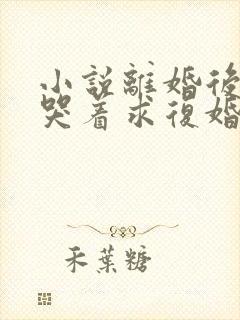 小説離婚後
哭着求復婚
禾葉糖